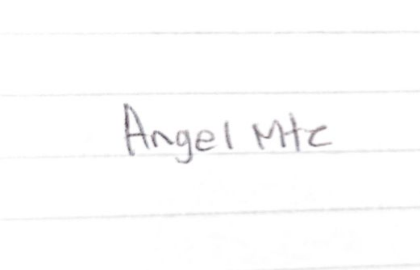 Angel Mtc